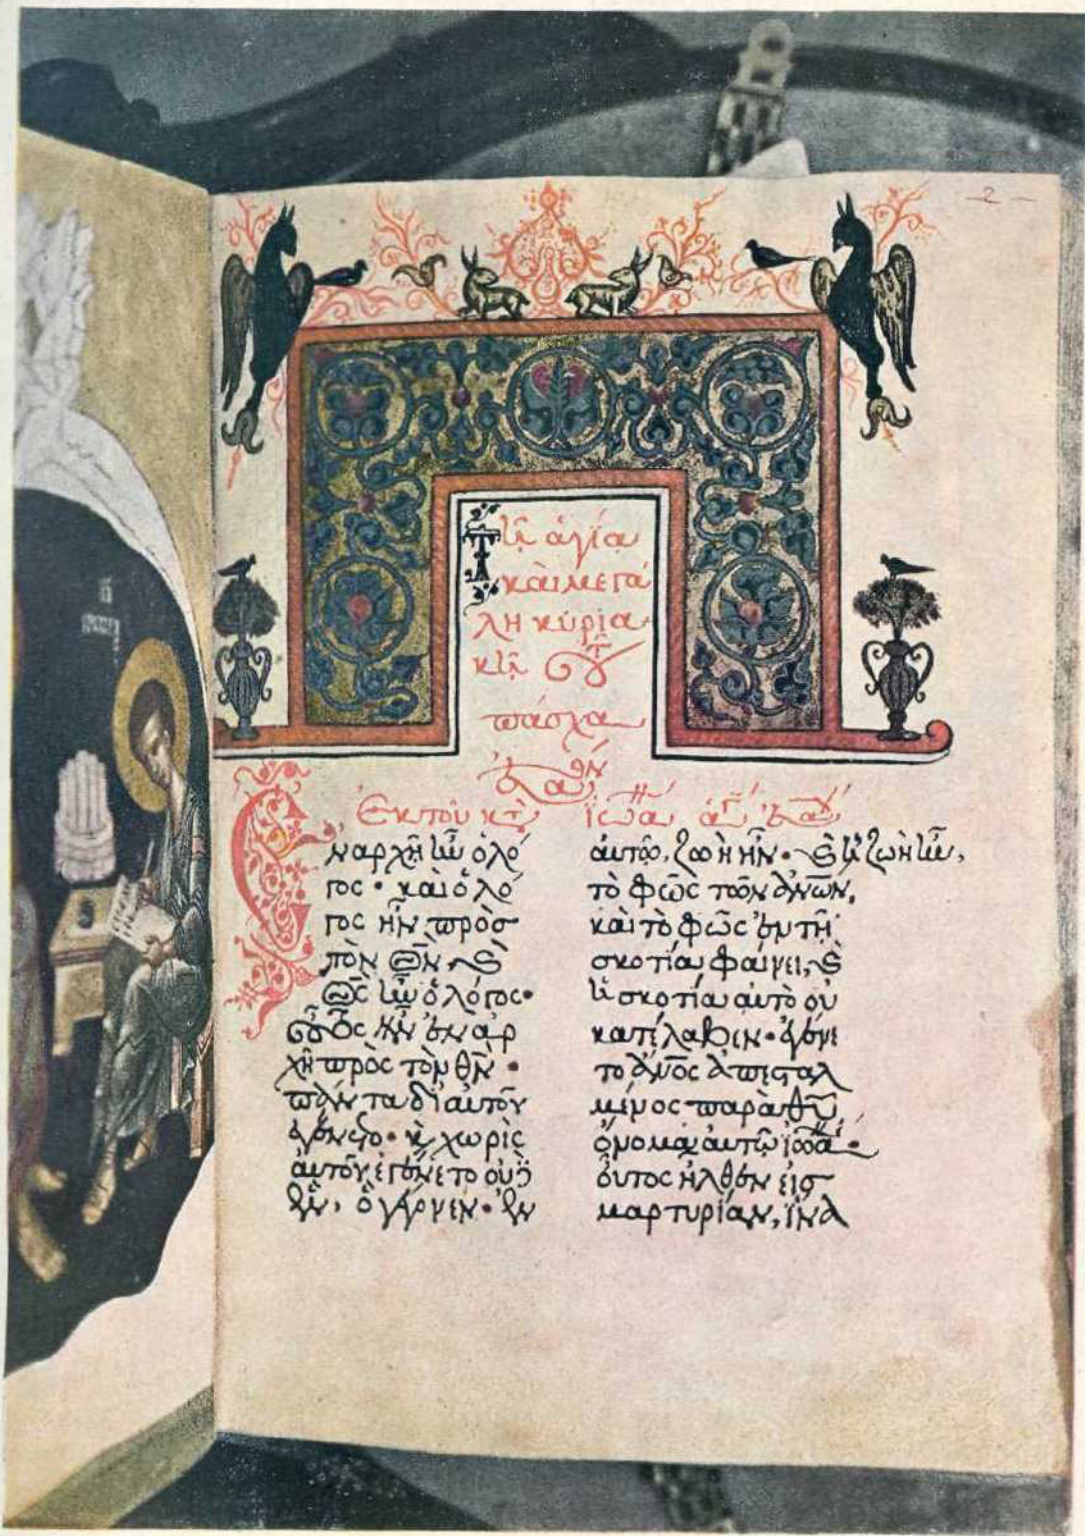 Τῇ ἁγίᾳ
καὶ μεγά
λῃ κυρια
κῇ
πάσχα
Ἐκ τοῦ κτ Ἰωα
ν ἀρχῇ ἦν ὁ λό
γος · καὶ ὁ λό
γος ἦν πρὸσ
τὸν θν κ
θς ἦν ὁ λόγος·
οὗτος ἦν ἐν ἀρ
χῇ πρὸς τὸν θν ·
πάντα δι αὐτοῦ
ἐγένετο · κ χωρὶς
αὐτοῦ ἐγένετο οὐδ
ἓν, ὃ γέγονεν · ἐν
αὐτῶ, ζωὴ ἦν · κ ἡ ζωὴ ἦν,
τὸ φῶς τῶν ἀνων,
καὶ τὸ φῶς ἐν τῇ
σκοτία φαίνει, κ
ἡ σκοτία αὐτὸ οὐ
κατέλαβεν · ἐγένε
το ἄνος ἀπεσταλ
μένος παρὰ θυ,
ὄνομα αὐτῷ ἰωα ·
οὗτος ἦλθεν εἰσ
μαρτυρίαν, ἵνα